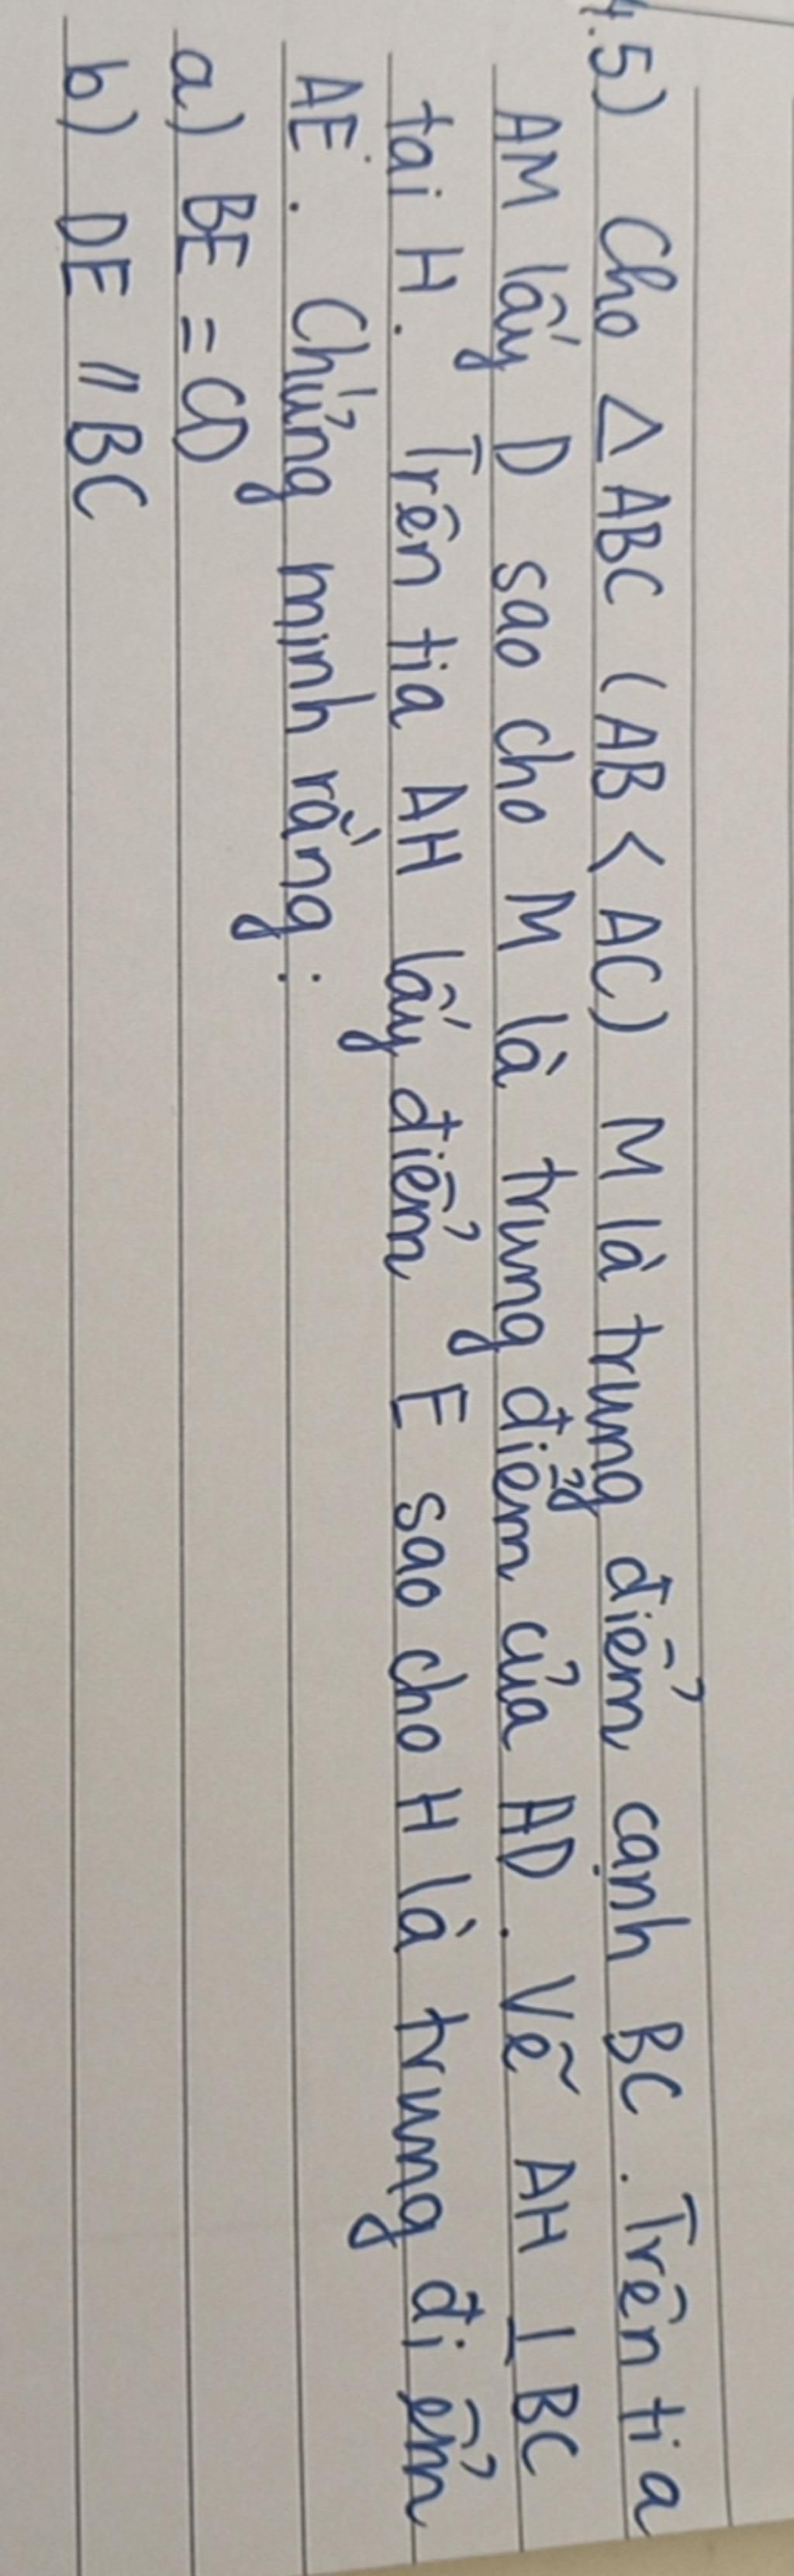 4.5) Cho △ ABC (AB < AC) M là trung điểm cạnh BC. Trên tia
AM lấy D sao cho M là trung điểm của AD. Vẽ AH ⊥ BC
tại H. Trên tia AH lấy điểm E sao cho H là trung điểm
AE. Chứng minh rằng:
a) BE = CD
b) DE // BC